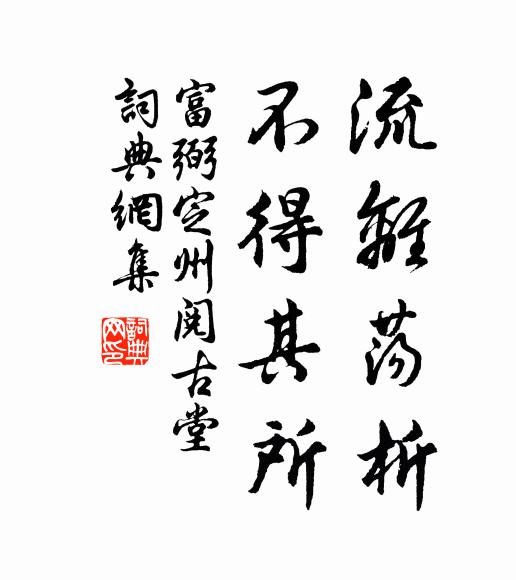 流離蕩析
不得其所
富弼定州閱古堂
詞典網集
詞典
网印